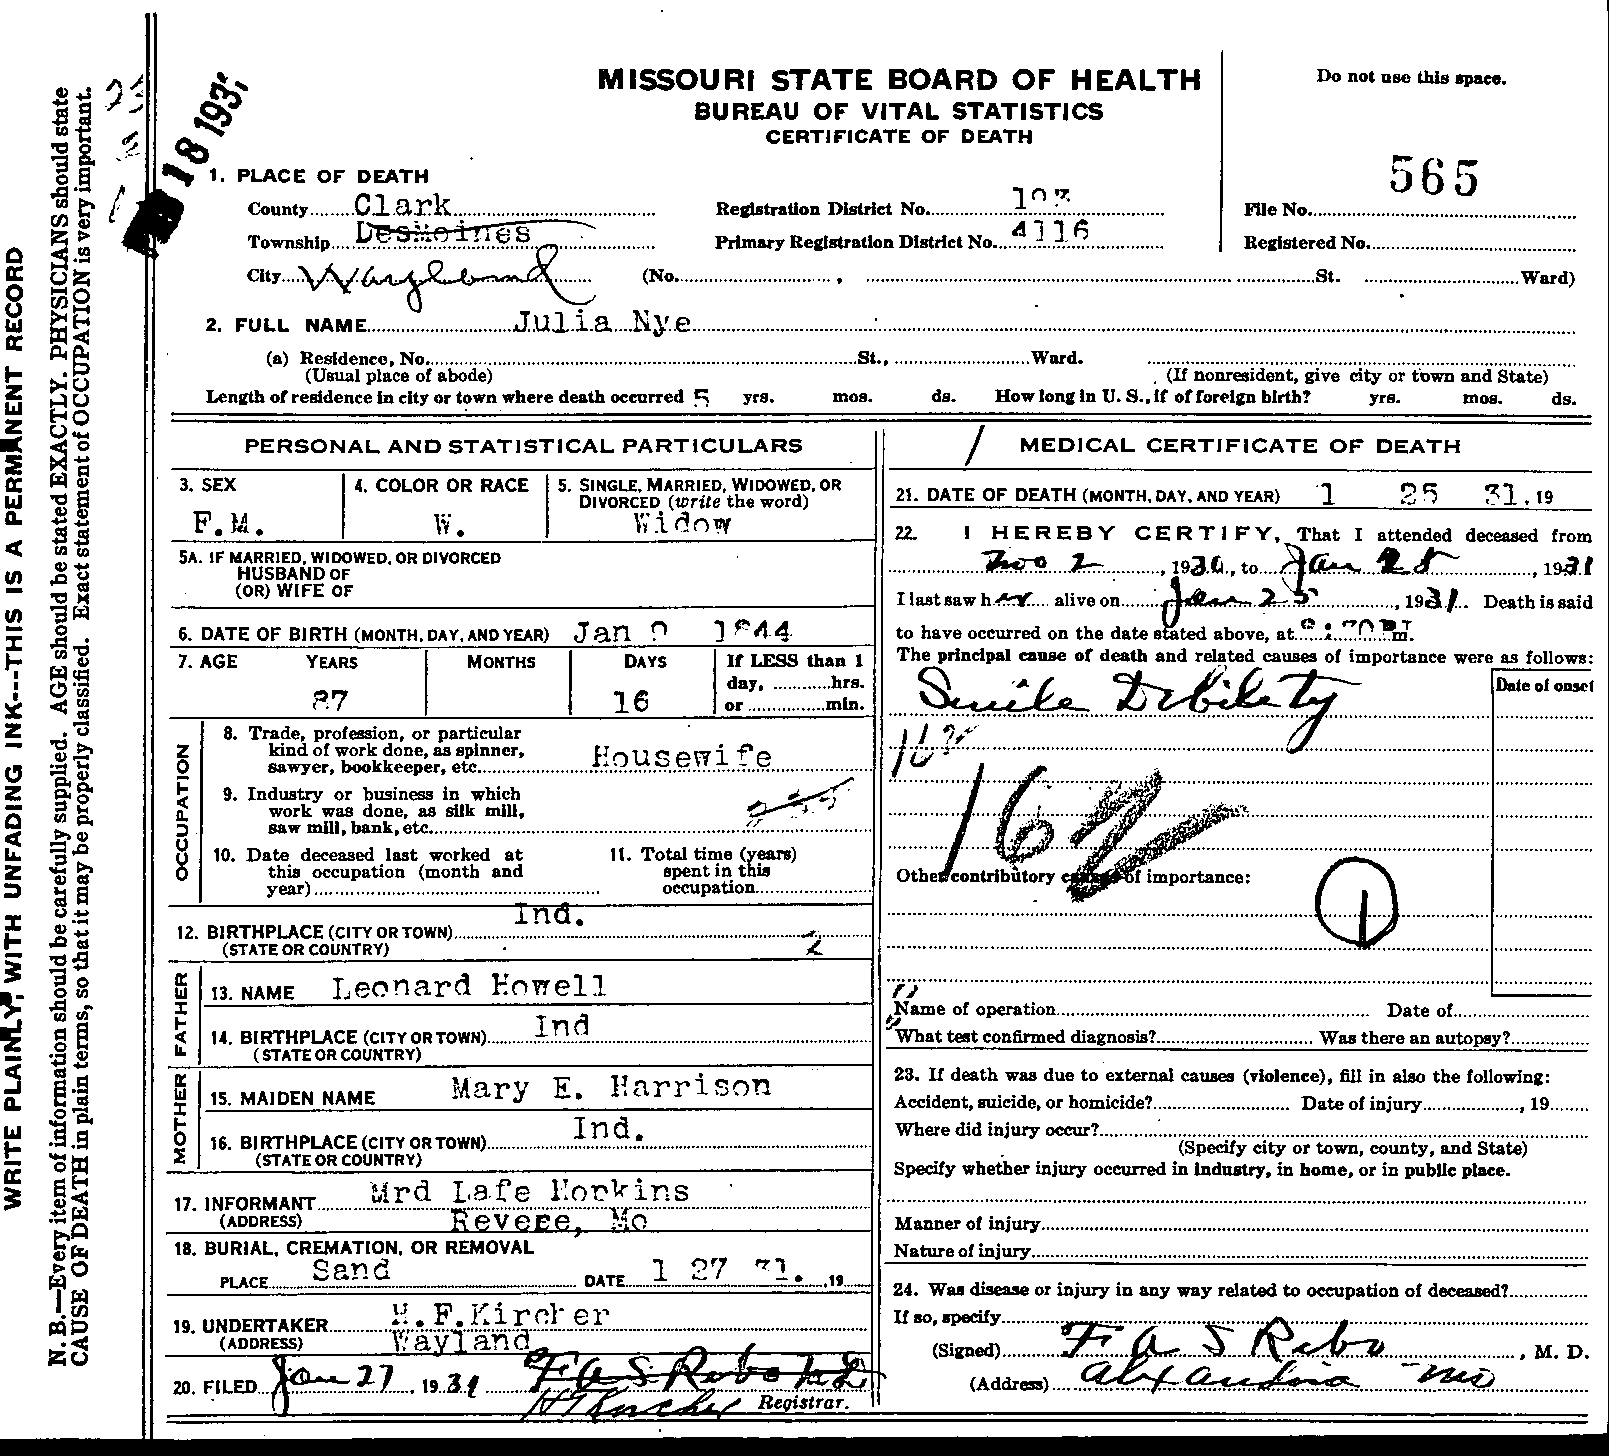 MISSOURI STATE BOARD OF HEALTH
BUREAU OF VITAL STATISTICS
CERTIFICATE OF DEATH
Do not use this space.
18 193
565
1. PLACE OF DEATH
County Clark Registration District No. File No.
Township DesMoines Primary Registration District No. 4116 Registered No.
City Wayland (No. , St. Ward)
2. FULL NAME Julia Nye
(a) Residence, No. St., Ward.
(Usual place of abode) (If nonresident, give city or town and State)
Length of residence in city or town where death occurred 5 yrs. mos. ds. How long in U. S., if of foreign birth? yrs. mos. ds.
PERSONAL AND STATISTICAL PARTICULARS
3. SEX 4. COLOR OR RACE 5. SINGLE, MARRIED, WIDOWED, OR
DIVORCED (write the word)
F.M. W. Widow
5A. IF MARRIED, WIDOWED, OR DIVORCED
HUSBAND OF
(OR) WIFE OF
6. DATE OF BIRTH (MONTH, DAY, AND YEAR) Jan 1844
7. AGE YEARS MONTHS DAYS If LESS than 1
day, hrs.
or min.
87 16
OCCUPATION
8. Trade, profession, or particular
kind of work done, as spinner,
sawyer, bookkeeper, etc. Housewife
9. Industry or business in which
work was done, as silk mill,
saw mill, bank, etc.
10. Date deceased last worked at
this occupation (month and
year)
11. Total time (years)
spent in this
occupation
12. BIRTHPLACE (CITY OR TOWN) Ind.
(STATE OR COUNTRY)
FATHER
13. NAME Leonard Howell
14. BIRTHPLACE (CITY OR TOWN) Ind
(STATE OR COUNTRY)
MOTHER
15. MAIDEN NAME Mary E. Harrison
16. BIRTHPLACE (CITY OR TOWN) Ind.
(STATE OR COUNTRY)
17. INFORMANT Mrd Lafe Hopkins
(ADDRESS) Revere, Mo
18. BURIAL, CREMATION, OR REMOVAL
PLACE Sand DATE 1 27 31. ,19
19. UNDERTAKER H.F.Kircher
(ADDRESS) Wayland
20. FILED Jan 27, 1931 F A S Rebo
H F Kircher Registrar.
MEDICAL CERTIFICATE OF DEATH
21. DATE OF DEATH (MONTH, DAY, AND YEAR) 1 25 31, 19
22. I HEREBY CERTIFY, That I attended deceased from
Nov 2, 1930, to Jan 25, 1931
I last saw her alive on Jan 25, 1931. Death is said
to have occurred on the date stated above, at m.
The principal cause of death and related causes of importance were as follows:
Date of onset
Senile Debility
162
162
Other contributory causes of importance:
1
Name of operation Date of
What test confirmed diagnosis? Was there an autopsy?
23. If death was due to external causes (violence), fill in also the following:
Accident, suicide, or homicide? Date of injury , 19
Where did injury occur?
(Specify city or town, county, and State)
Specify whether injury occurred in industry, in home, or in public place.
Manner of injury
Nature of injury
24. Was disease or injury in any way related to occupation of deceased?
If so, specify
(Signed) F A S Rebo , M. D.
(Address) Alexandria Mo
WRITE PLAINLY, WITH UNFADING INK---THIS IS A PERMANENT RECORD
N. B.—Every item of information should be carefully supplied. AGE should be stated EXACTLY. PHYSICIANS should state
CAUSE OF DEATH in plain terms, so that it may be properly classified. Exact statement of OCCUPATION is very important.